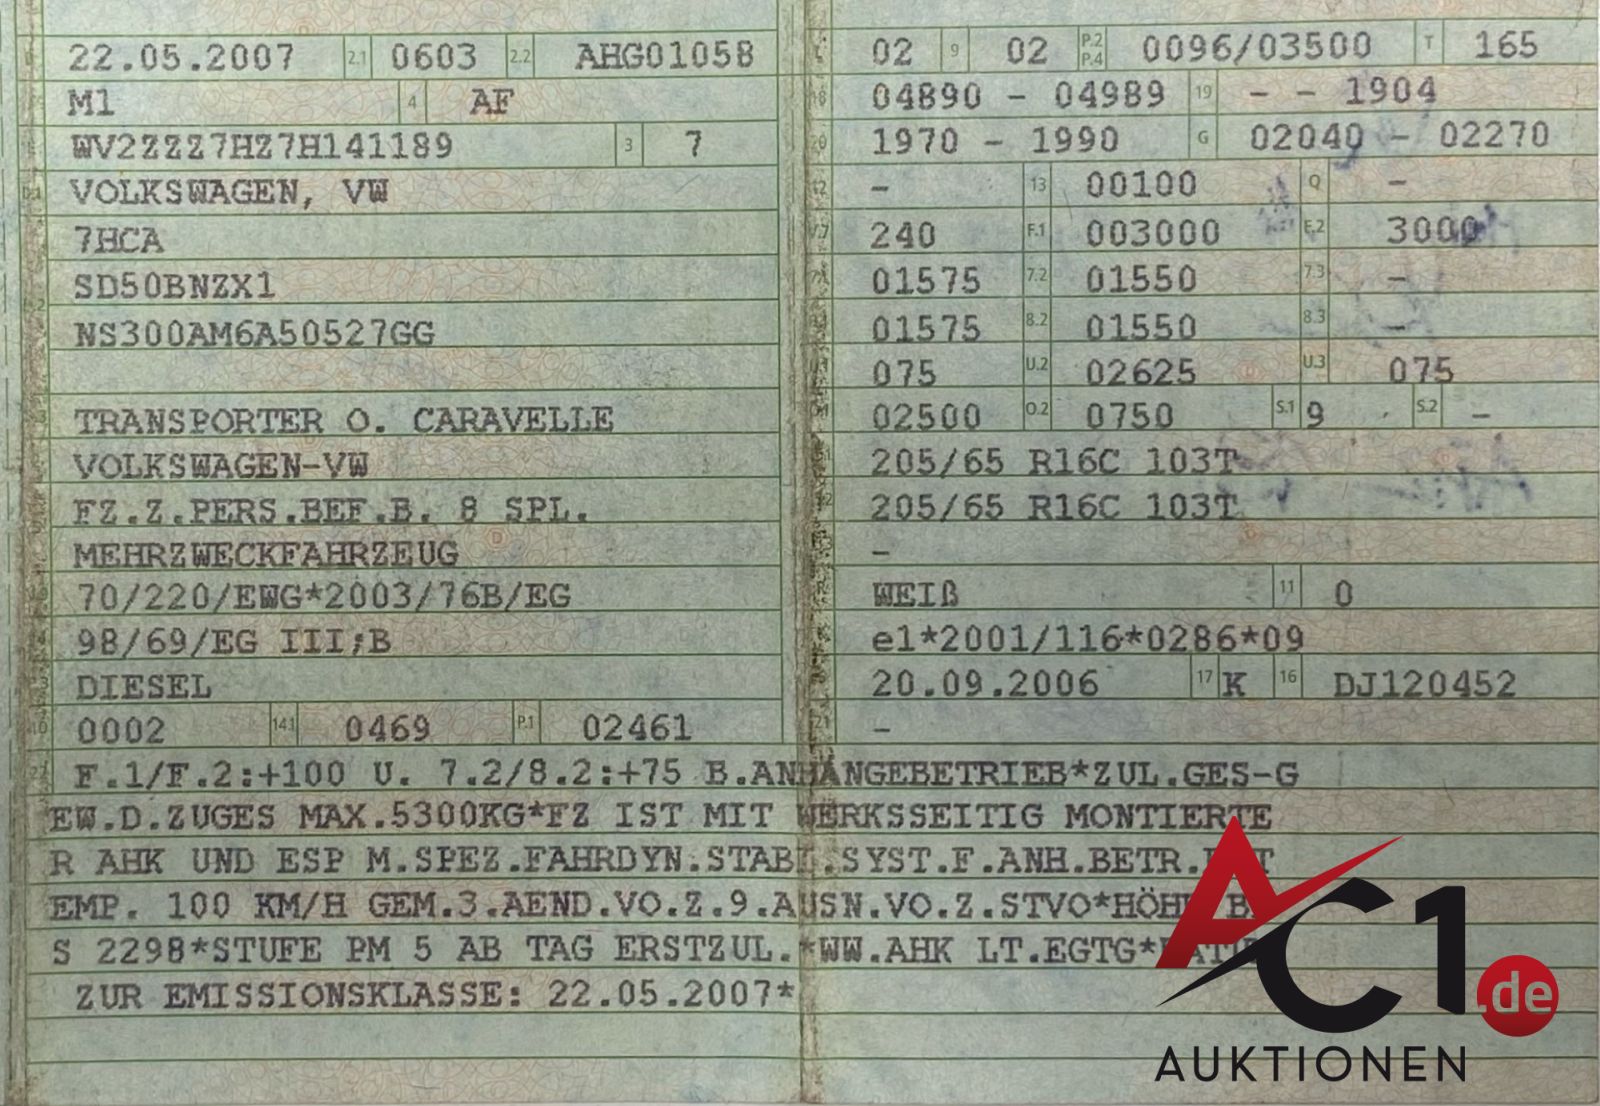 22.05.2007 2.1 0603 2.2 AHG01058
M1 4 AF
WV2ZZZ7HZ7H141189 3 7
VOLKSWAGEN, VW
7HCA
SD50BNZX1
NS300AM6A50527GG
TRANSPORTER O. CARAVELLE
VOLKSWAGEN-VW
FZ.Z.PERS.BEF.B. 8 SPL.
MEHRZWECKFAHRZEUG
70/220/EWG*2003/76B/EG
98/69/EG III;B
DIESEL
0002 14.1 0469 P.1 02461
L 02 9 02 P.2 P.4 0096/03500 T 165
18 04890 - 04989 19 - - 1904
20 1970 - 1990 G 02040 - 02270
12 - 13 00100 Q -
V.7 240 F.1 003000 F.2 3000
7.1 01575 7.2 01550 7.3 -
8.1 01575 8.2 01550 8.3 -
U.1 075 U.2 02625 U.3 075
O.1 02500 O.2 0750 S.1 9 S.2 -
205/65 R16C 103T
205/65 R16C 103T
-
R WEIß 11 0
K e1*2001/116*0286*09
20.09.2006 17 K 16 DJ120452
21 -
22 F.1/F.2:+100 U. 7.2/8.2:+75 B.ANHÄNGEBETRIEB*ZUL.GES-G
EW.D.ZUGES MAX.5300KG*FZ IST MIT WERKSSEITIG MONTIERTE
R AHK UND ESP M.SPEZ.FAHRDYN.STABI.SYST.F.ANH.BETR.
EMP. 100 KM/H GEM.3.AEND.VO.Z.9.AUSN.VO.Z.STVO*HÖHE
S 2298*STUFE PM 5 AB TAG ERSTZUL.*WW.AHK LT.EGTG*
ZUR EMISSIONSKLASSE: 22.05.2007*
AC1.de
AUKTIONEN